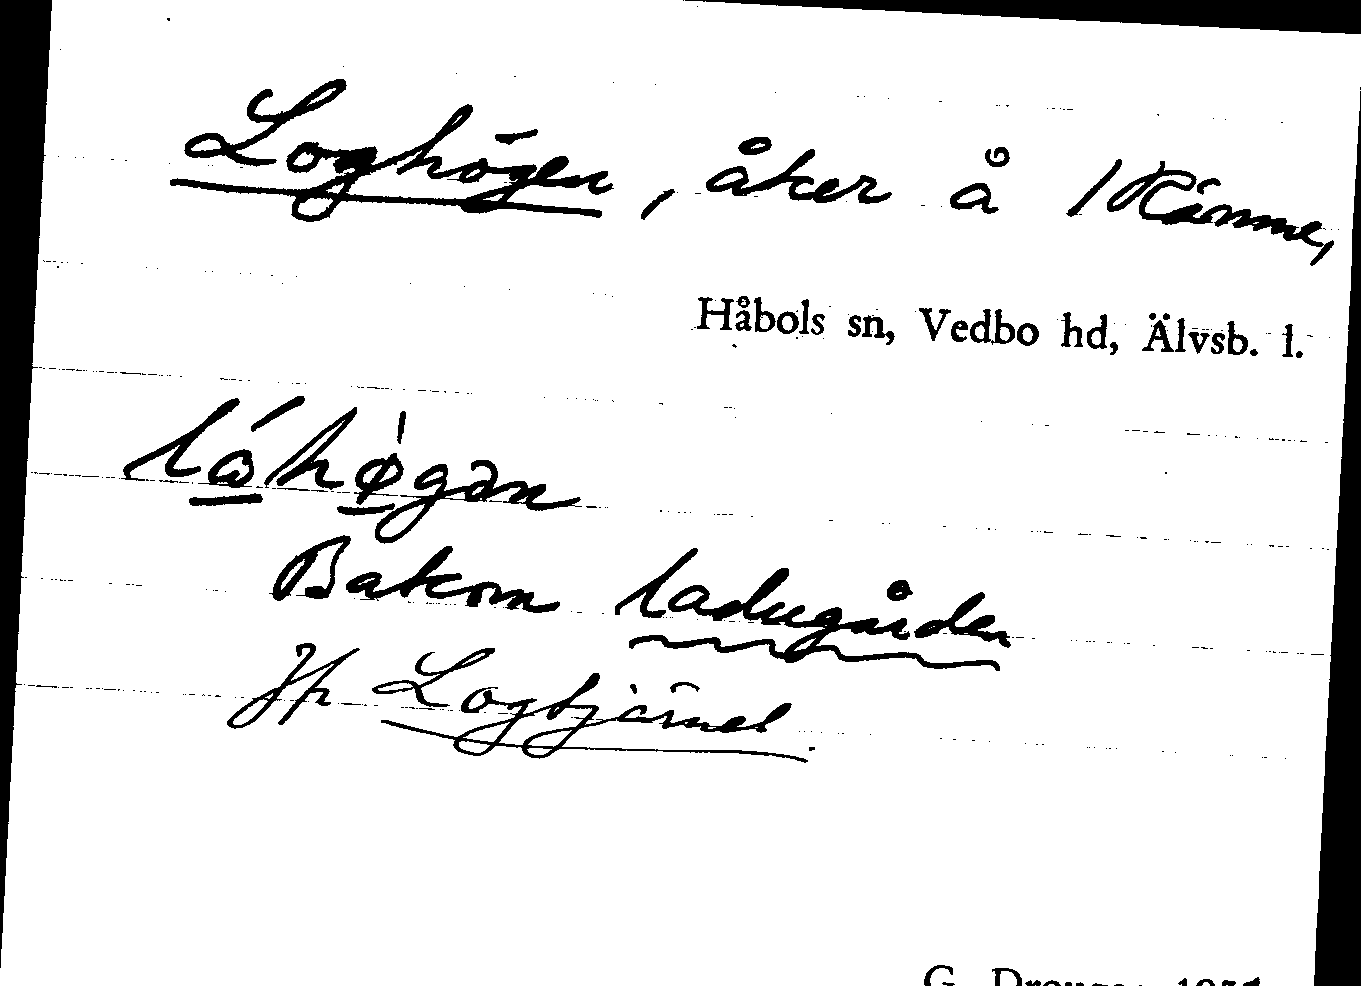 Loghögen, åker å 1 Känne,
Håbols sn, Vedbo hd, Älvsb. l.
lóhø̀gən
Bakom ladugården
Jfr Logtjärnet
G.